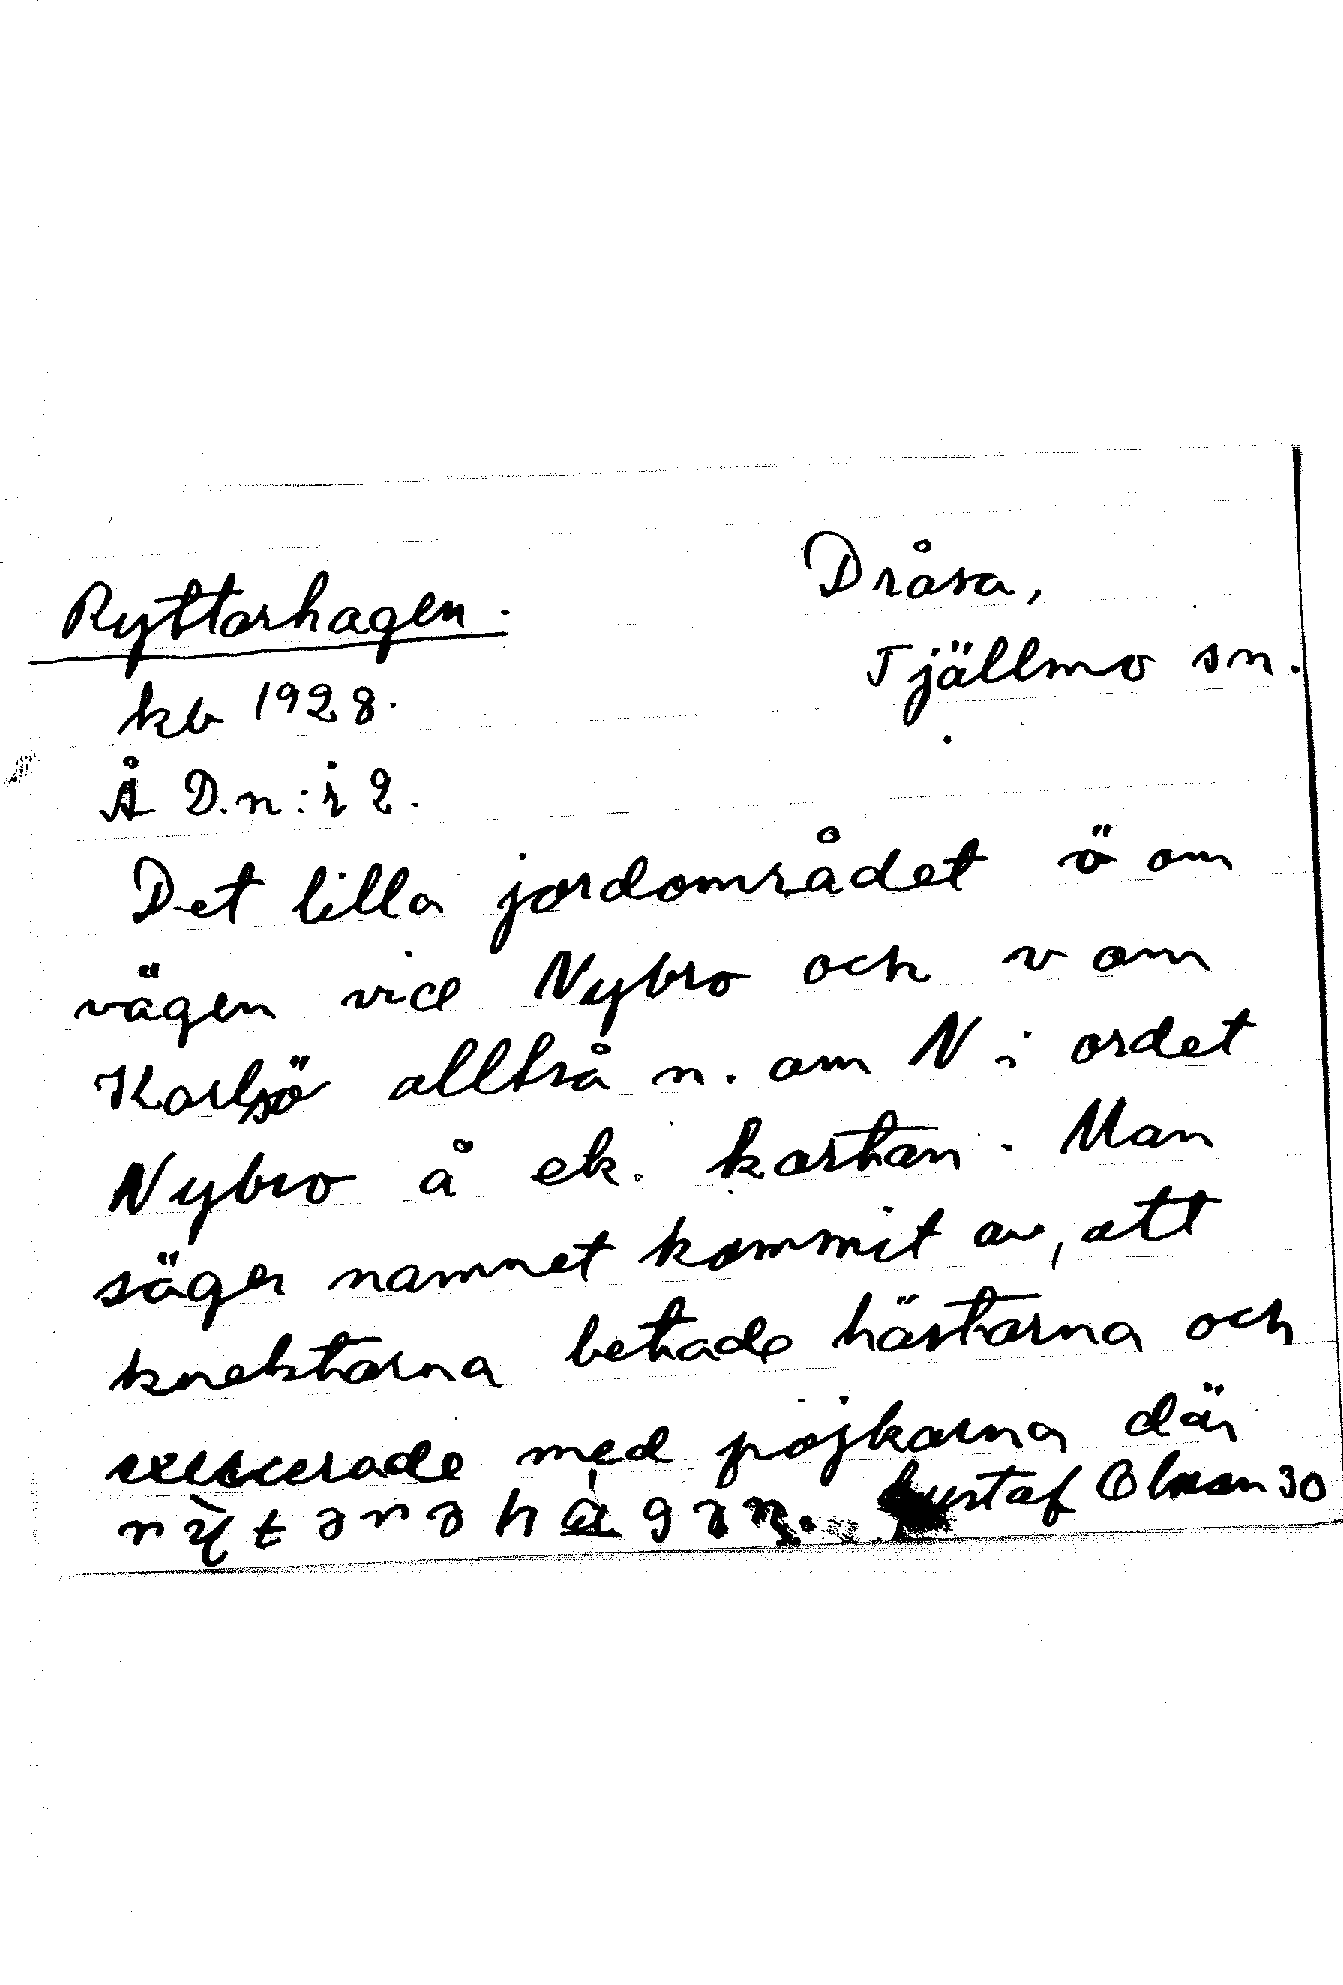 Ryttarhagen.
Dråsa,
Tjällmo sn.
kb 1928.
Å D.n:r 2.
Det lilla jordområdet ö om
vägen vid Nybro och v om
Karlsjö alltså n. om N i ordet
Nybro å ek. kartan. Man
säger namnet kommit av, att
knektarna betade hästarna och
exercerade med pojkarna där
Gustaf Olsson 30